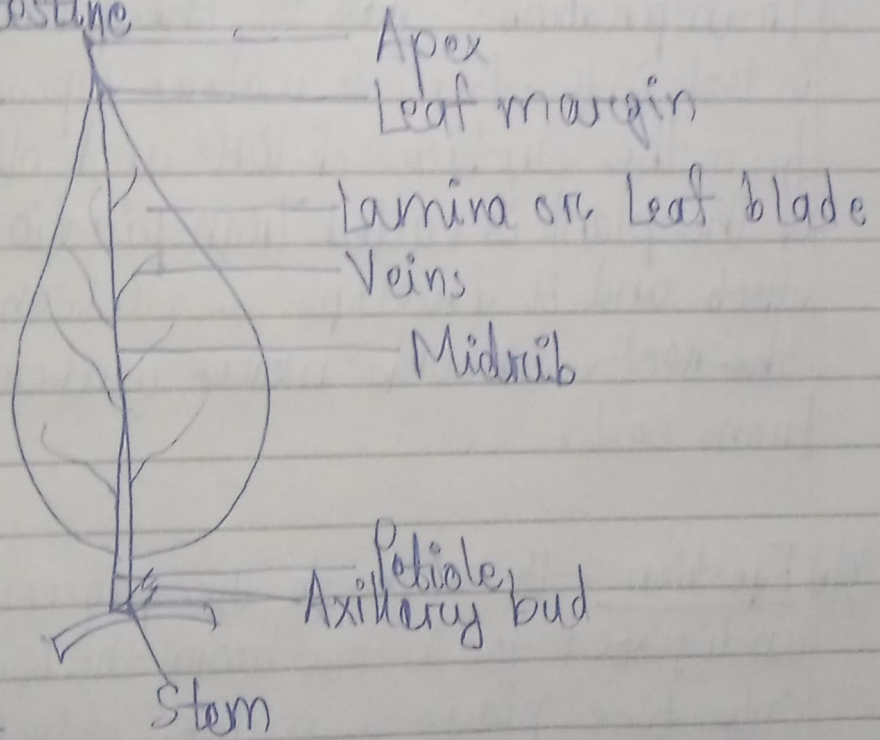 Apex
Leaf margin
Lamina or Leaf blade
Veins
Midrib
Petiole
Axillary bud
Stem